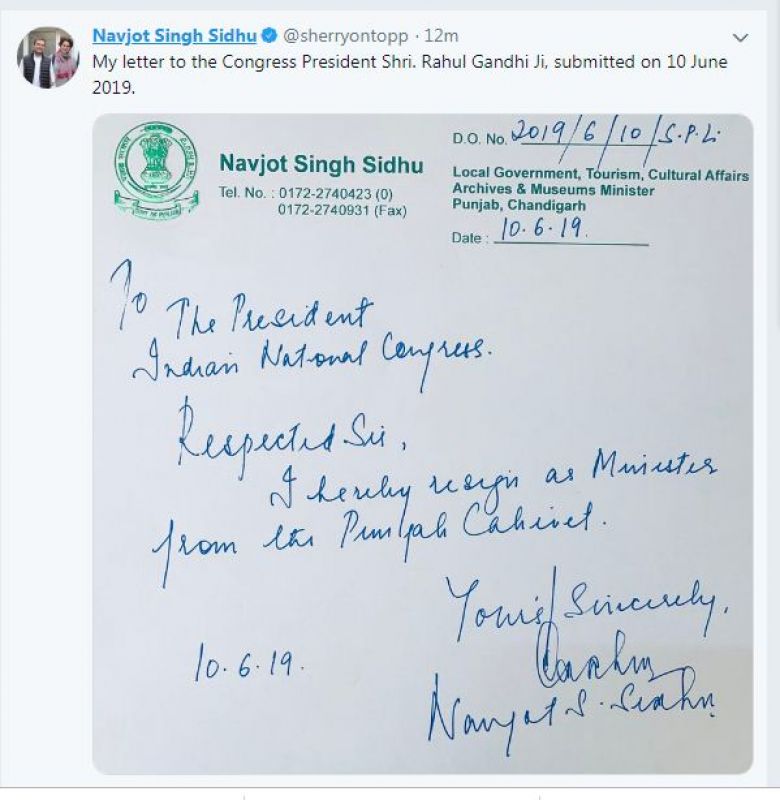 Navjot Singh Sidhu @sherryontopp · 12m
My letter to the Congress President Shri. Rahul Gandhi Ji, submitted on 10 June
2019.
D.O. No. 2019/6/10/S.P.L.
Navjot Singh Sidhu
Tel. No. : 0172-2740423 (0)
0172-2740931 (Fax)
Local Government, Tourism, Cultural Affairs
Archives & Museums Minister
Punjab, Chandigarh
Date : 10.6.19.
To
The President
Indian National Congress.
Respected Sir,
I hereby resign as Minister
from the Punjab Cabinet.
Yours Sincerely,
10.6.19.
Navjot S. Sidhu